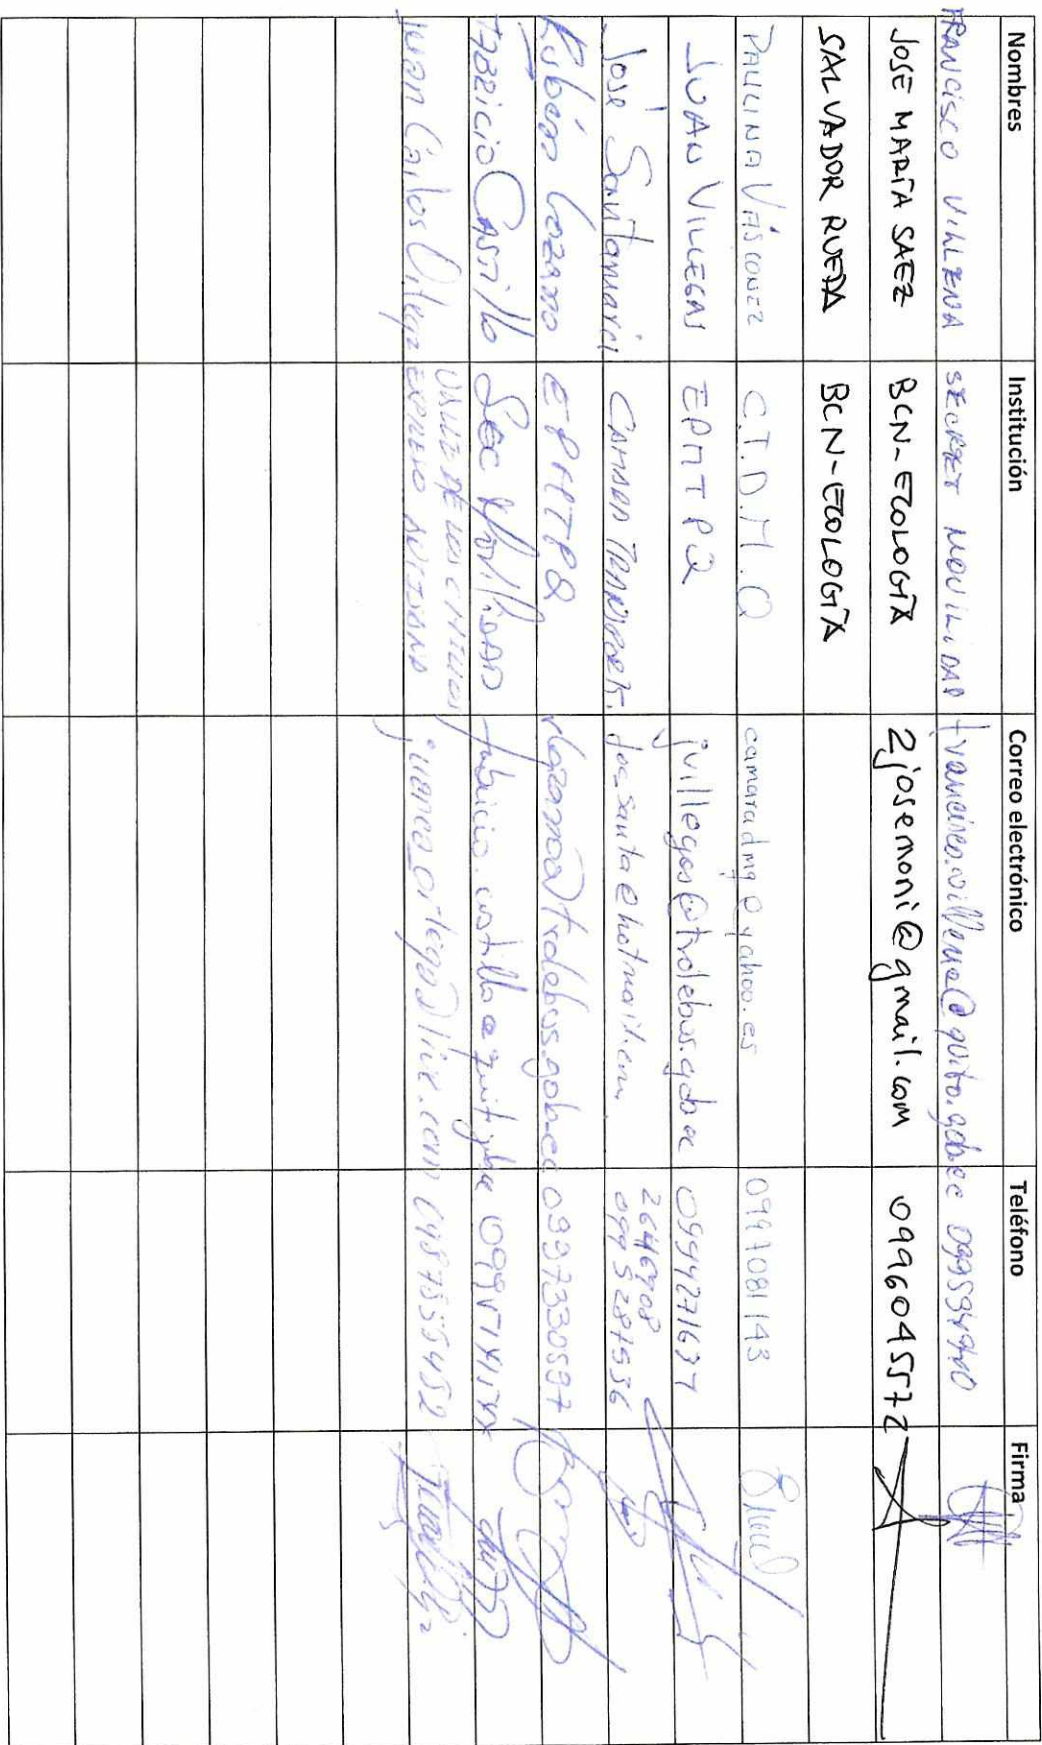 Nombres Institución Correo electrónico Teléfono Firma
FRANCISCO VILLENA SECRET MOVILIDAD francisco.villena@quito.gob.ec
JOSE MARÍA SAEZ BCN-ECOLOGÍA 2josemoni@gmail.com 0996045572
SALVADOR RUEDA BCN-ECOLOGÍA
PAULINA VÁSCONEZ C.T.D.M.Q camaradmq@yahoo.es 0997081143
JUAN VILLEGAS EPMTPQ jvillegas@trolebus.gob.ec 0994271637
José Santamaría CAMARA TRANSPORT. joe_santa@hotmail.com 2646908
0995287536
Rubén Lozano EPMTPQ rlozano@trolebus.gob.ec 0997330597
FABRICIO CASTILLO SEC MOVILIDAD
Juan Carlos Ortega VALLE DE LOS CHILLOS
EXPRESO ANTISANA juanca_ortega@live.com